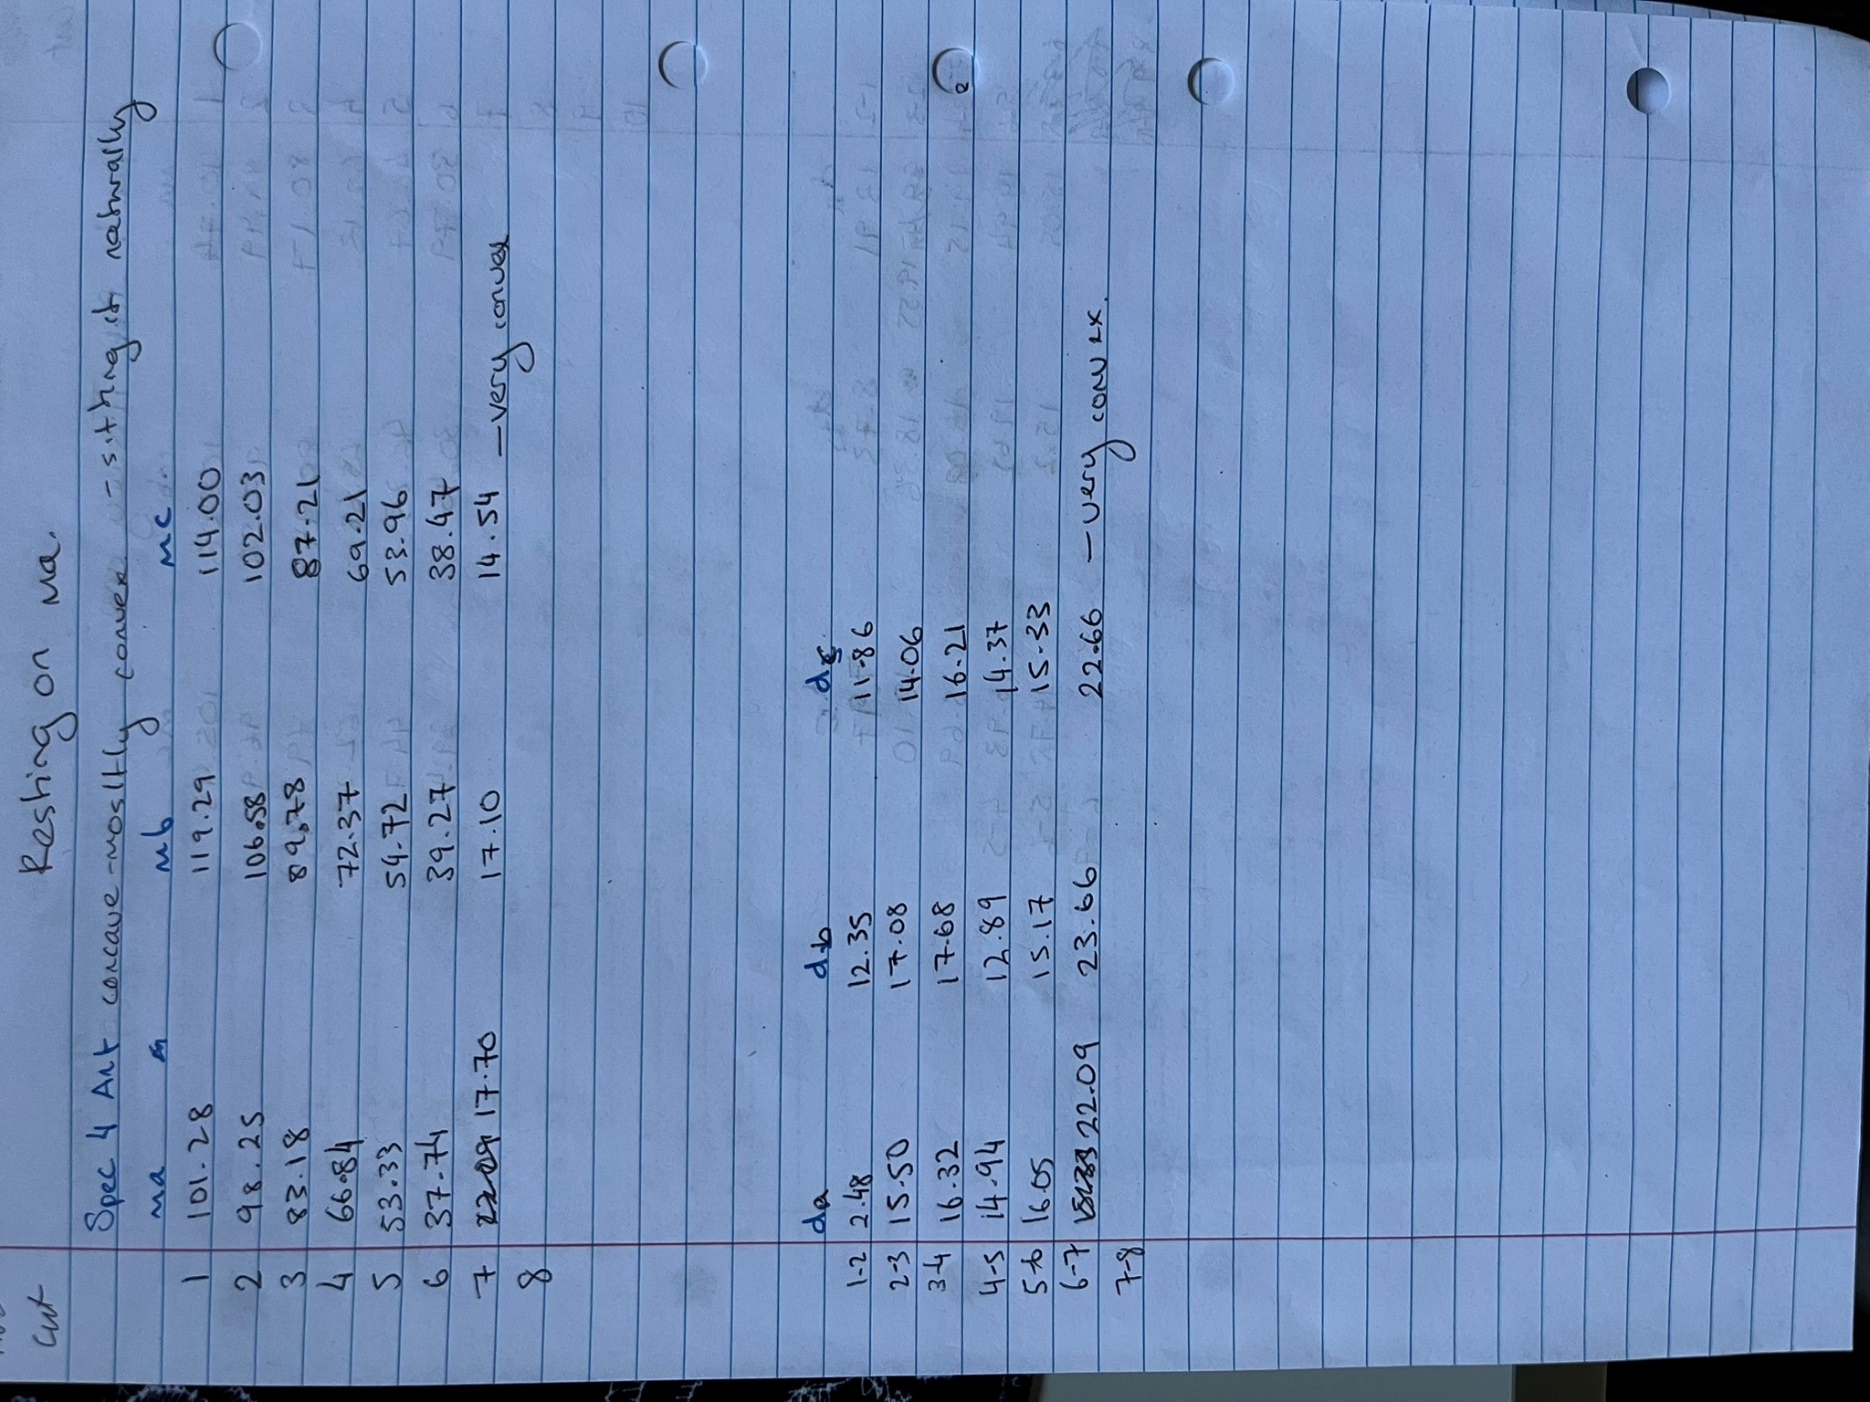 Resting on ma.
Cut
Spec 4 Ant concave - mosltly convex - sitting it naturally
ma mb mc
1 101.28 119.29 114.00
2 98.25 106.58 102.03
3 83.18 89.78 87.21
4 66.84 72.37 69.21
5 53.33 54.72 53.96
6 37.74 39.27 38.47
7 17.70 17.10 14.54 - very convex
8
da db dc
1-2 2.48 12.35 11.86
2-3 15.50 17.08 14.06
3-4 16.32 17.68 16.21
4-5 14.94 12.89 14.37
5-6 16.05 15.17 15.33
6-7 22.09 23.66 22.66 - very convex.
7-8